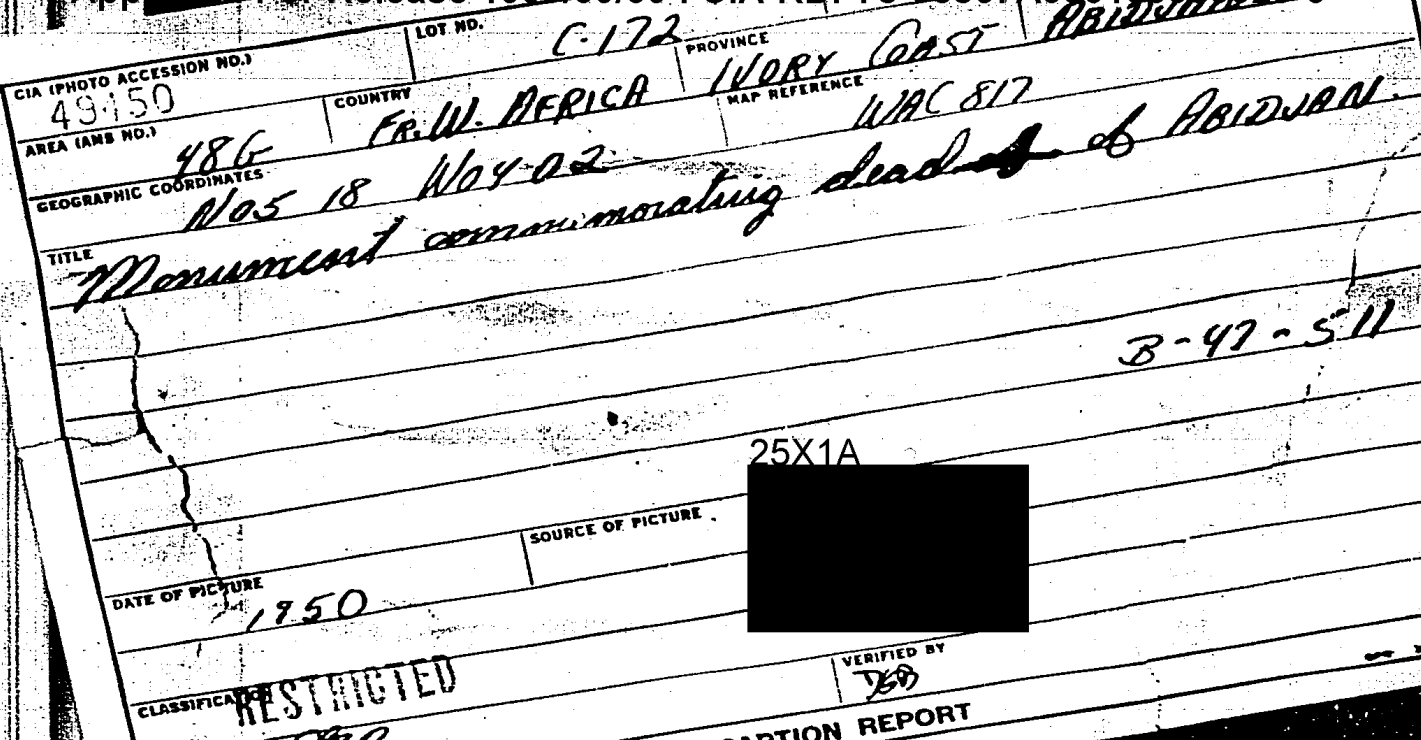 LOT NO. C-172
ABIDJAN
CIA (PHOTO ACCESSION NO.) 49150
COUNTRY FR. W. AFRICA
PROVINCE IVORY COAST
AREA (AMB NO.) 48G
MAP REFERENCE WAC 817
GEOGRAPHIC COORDINATES N05 18 W04-02
TITLE
Monument commemorating dead of ABIDJAN.
B-47-511
25X1A
SOURCE OF PICTURE
DATE OF PICTURE
1950
VERIFIED BY
CLASSIFICATION RESTRICTED
REPORT